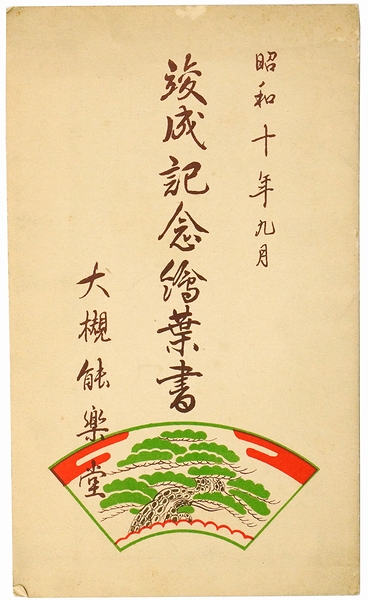 昭和十年九月
竣成記念繪葉書
大槻能楽堂